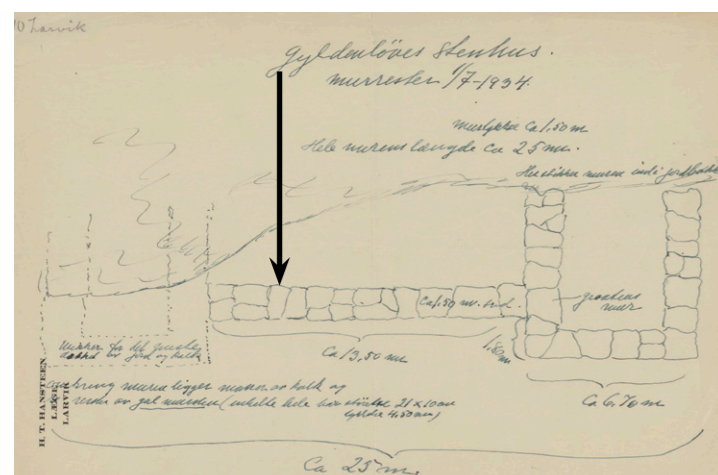 10 Larvik
Gyldenlöves Stenhus.
murrester 1/7-1934.
murtykke Ca 1,50 m
Hele murens længde Ca 25 m.
Her stikker muren ind i jordbakken
Ca 1,50 m.
grundens
mur
Merker for det
dækket av jord og kalk
Ca 13,50 m
1,80 m
Ca 6,70 m
omkring muren ligger masser av kalk og
rester av gul mursten (enkelte hele har størrelse 21 x 10 cm
tykkelse 4,50 cm)
H. T. HANSTEEN
LÆGE
LARVIK
Ca 25 m.